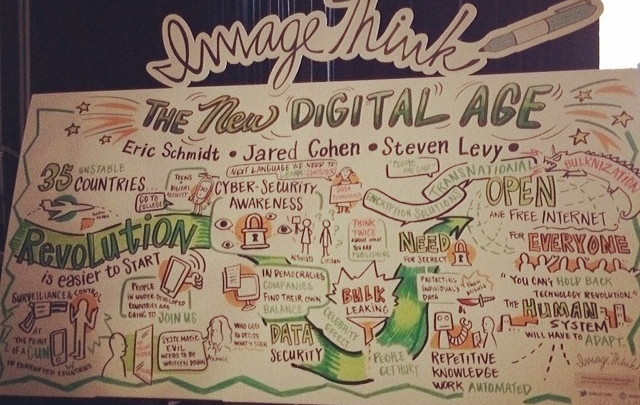 ImageThink
THE New "DIGITAL" AGE
Eric Schmidt • Jared Cohen • Steven Levy •
35 UNSTABLE
COUNTRIES...
GO TO
COLLEGE
NEXT LANGUAGE WE NEED TO
CYBER-SECURITY
AWARENESS
ENCRYPTION SOLUTIONS
TRANSNATIONAL
BULKNIZATION
OPEN
AND FREE INTERNET
FOR EVERYONE
REVOLUTION
is easier to START
THINK
TWICE
ABOUT WHAT
YOU ARE
PUBLISHING
NEED
FOR SECRECY
ACTIVISTS
SURVEILLANCE & CONTROL
AT
THE POINT
OF A GUN
IN CORRUPTED COUNTRIES
PEOPLE
IN UNDER-DEVELOPED
COUNTRIES ARE
GOING TO JOIN US
SYSTEMATIC
EVIL
NEEDS TO BE
WRITTEN DOWN
WHO GETS
TO DECIDE
WHAT'S SEEN
IN DEMOCRACIES
COMPANIES
FIND THEIR OWN
BALANCE
DATA
SECURITY
BULK
LEAKING
CELEBRITY
EFFECT
PEOPLE
GET HURT
PROTECTING
INDIVIDUALS
DATA
REPETITIVE
KNOWLEDGE
WORK AUTOMATED
"YOU CAN'T HOLD BACK
TECHNOLOGY REVOLUTION."
THE HUMAN
SYSTEM
WILL HAVE TO ADAPT.
ImageThink